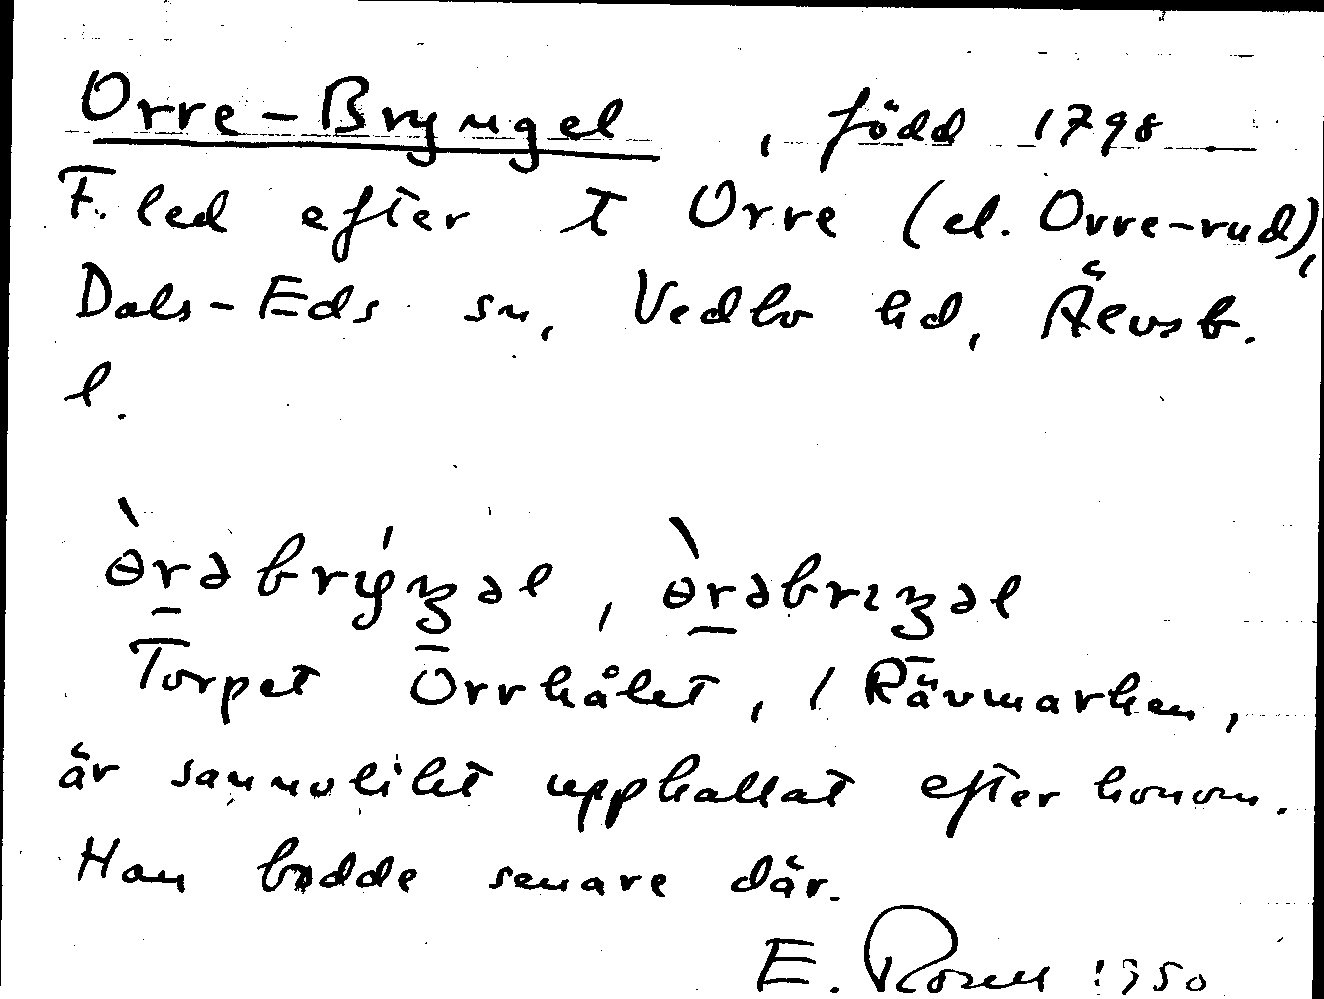 Orre-Bryngel, född 1798
F. led efter t Orre (el. Orre-rud),
Dals-Eds sn, Vedbo hd, Älvsb.
l.
Torpet Orrhålet, i Rävmarken,
är sannolikt uppkallat efter honom.
Han bodde senare där.
E. Rosell 1950